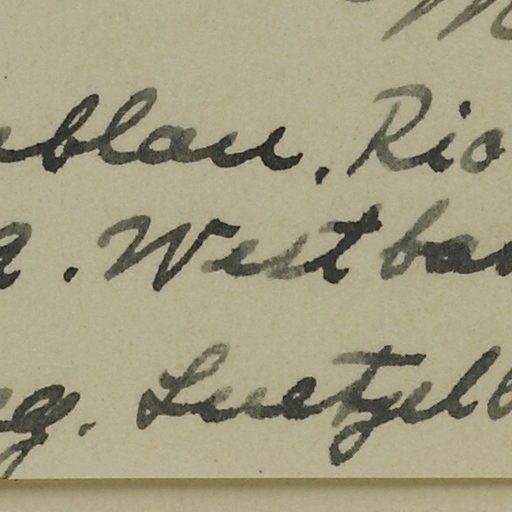 M
blau, Rio
a. Westban
eg. Luetzelb